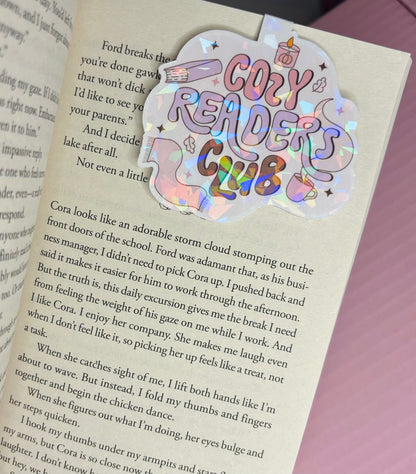 You'd left
anyway."
from
ding my gaze. If I da
as right now. Embarras
even in it to him."
impassive reply
ore intimate
ader, even—crad
respond.
anyone who
Ford breaks the
you're done gawk
that won't dick
I'd like to see yo
your parents."
And I decide
lake after all.
Not even a little
COZY
READERS
CLUB
Cora looks like an adorable storm cloud stomping out the
front doors of the school. Ford was adamant that, as his busi-
ness manager, I didn't need to pick Cora up. I pushed back and
said it makes it easier for him to work through the afternoon.
But the truth is, this daily excursion gives me the break I need
from feeling the weight of his gaze on me while I work. And
I like Cora. I enjoy her company. She makes me laugh even
when I don't feel like it, so picking her up feels like a treat, not
a task.
When she catches sight of me, I lift both hands like I'm
about to wave. But instead, I fold my thumbs and fingers
together and begin the chicken dance.
When she figures out what I'm doing, her eyes bulge and
her steps quicken.
I hook my thumbs under my armpits and start
my arms, but Cora is so close now th
laughter. I don't know
but hey, we b